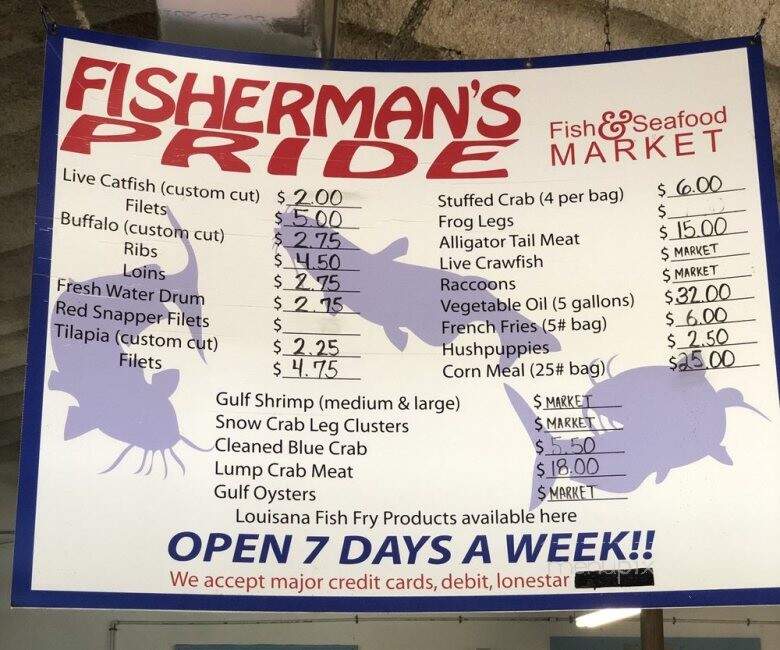 FISHERMAN'S
PRIDE
Fish & Seafood
MARKET
Live Catfish (custom cut) $ 2.00
Filets $ 5.00
Buffalo (custom cut) $ 2.75
Ribs $ 4.50
Loins $ 2.75
Fresh Water Drum $ 2.75
Red Snapper Filets $
Tilapia (custom cut) $ 2.25
Filets $ 4.75
Stuffed Crab (4 per bag) $ 6.00
Frog Legs $
Alligator Tail Meat $ 15.00
Live Crawfish $ MARKET
Raccoons $ MARKET
Vegetable Oil (5 gallons) $ 32.00
French Fries (5# bag) $ 6.00
Hushpuppies $ 2.50
Corn Meal (25# bag) $ 25.00
Gulf Shrimp (medium & large) $ MARKET
Snow Crab Leg Clusters $ MARKET
Cleaned Blue Crab $ 5.50
Lump Crab Meat $ 18.00
Gulf Oysters $ MARKET
Louisana Fish Fry Products available here
OPEN 7 DAYS A WEEK!!
We accept major credit cards, debit, lonestar
menupix